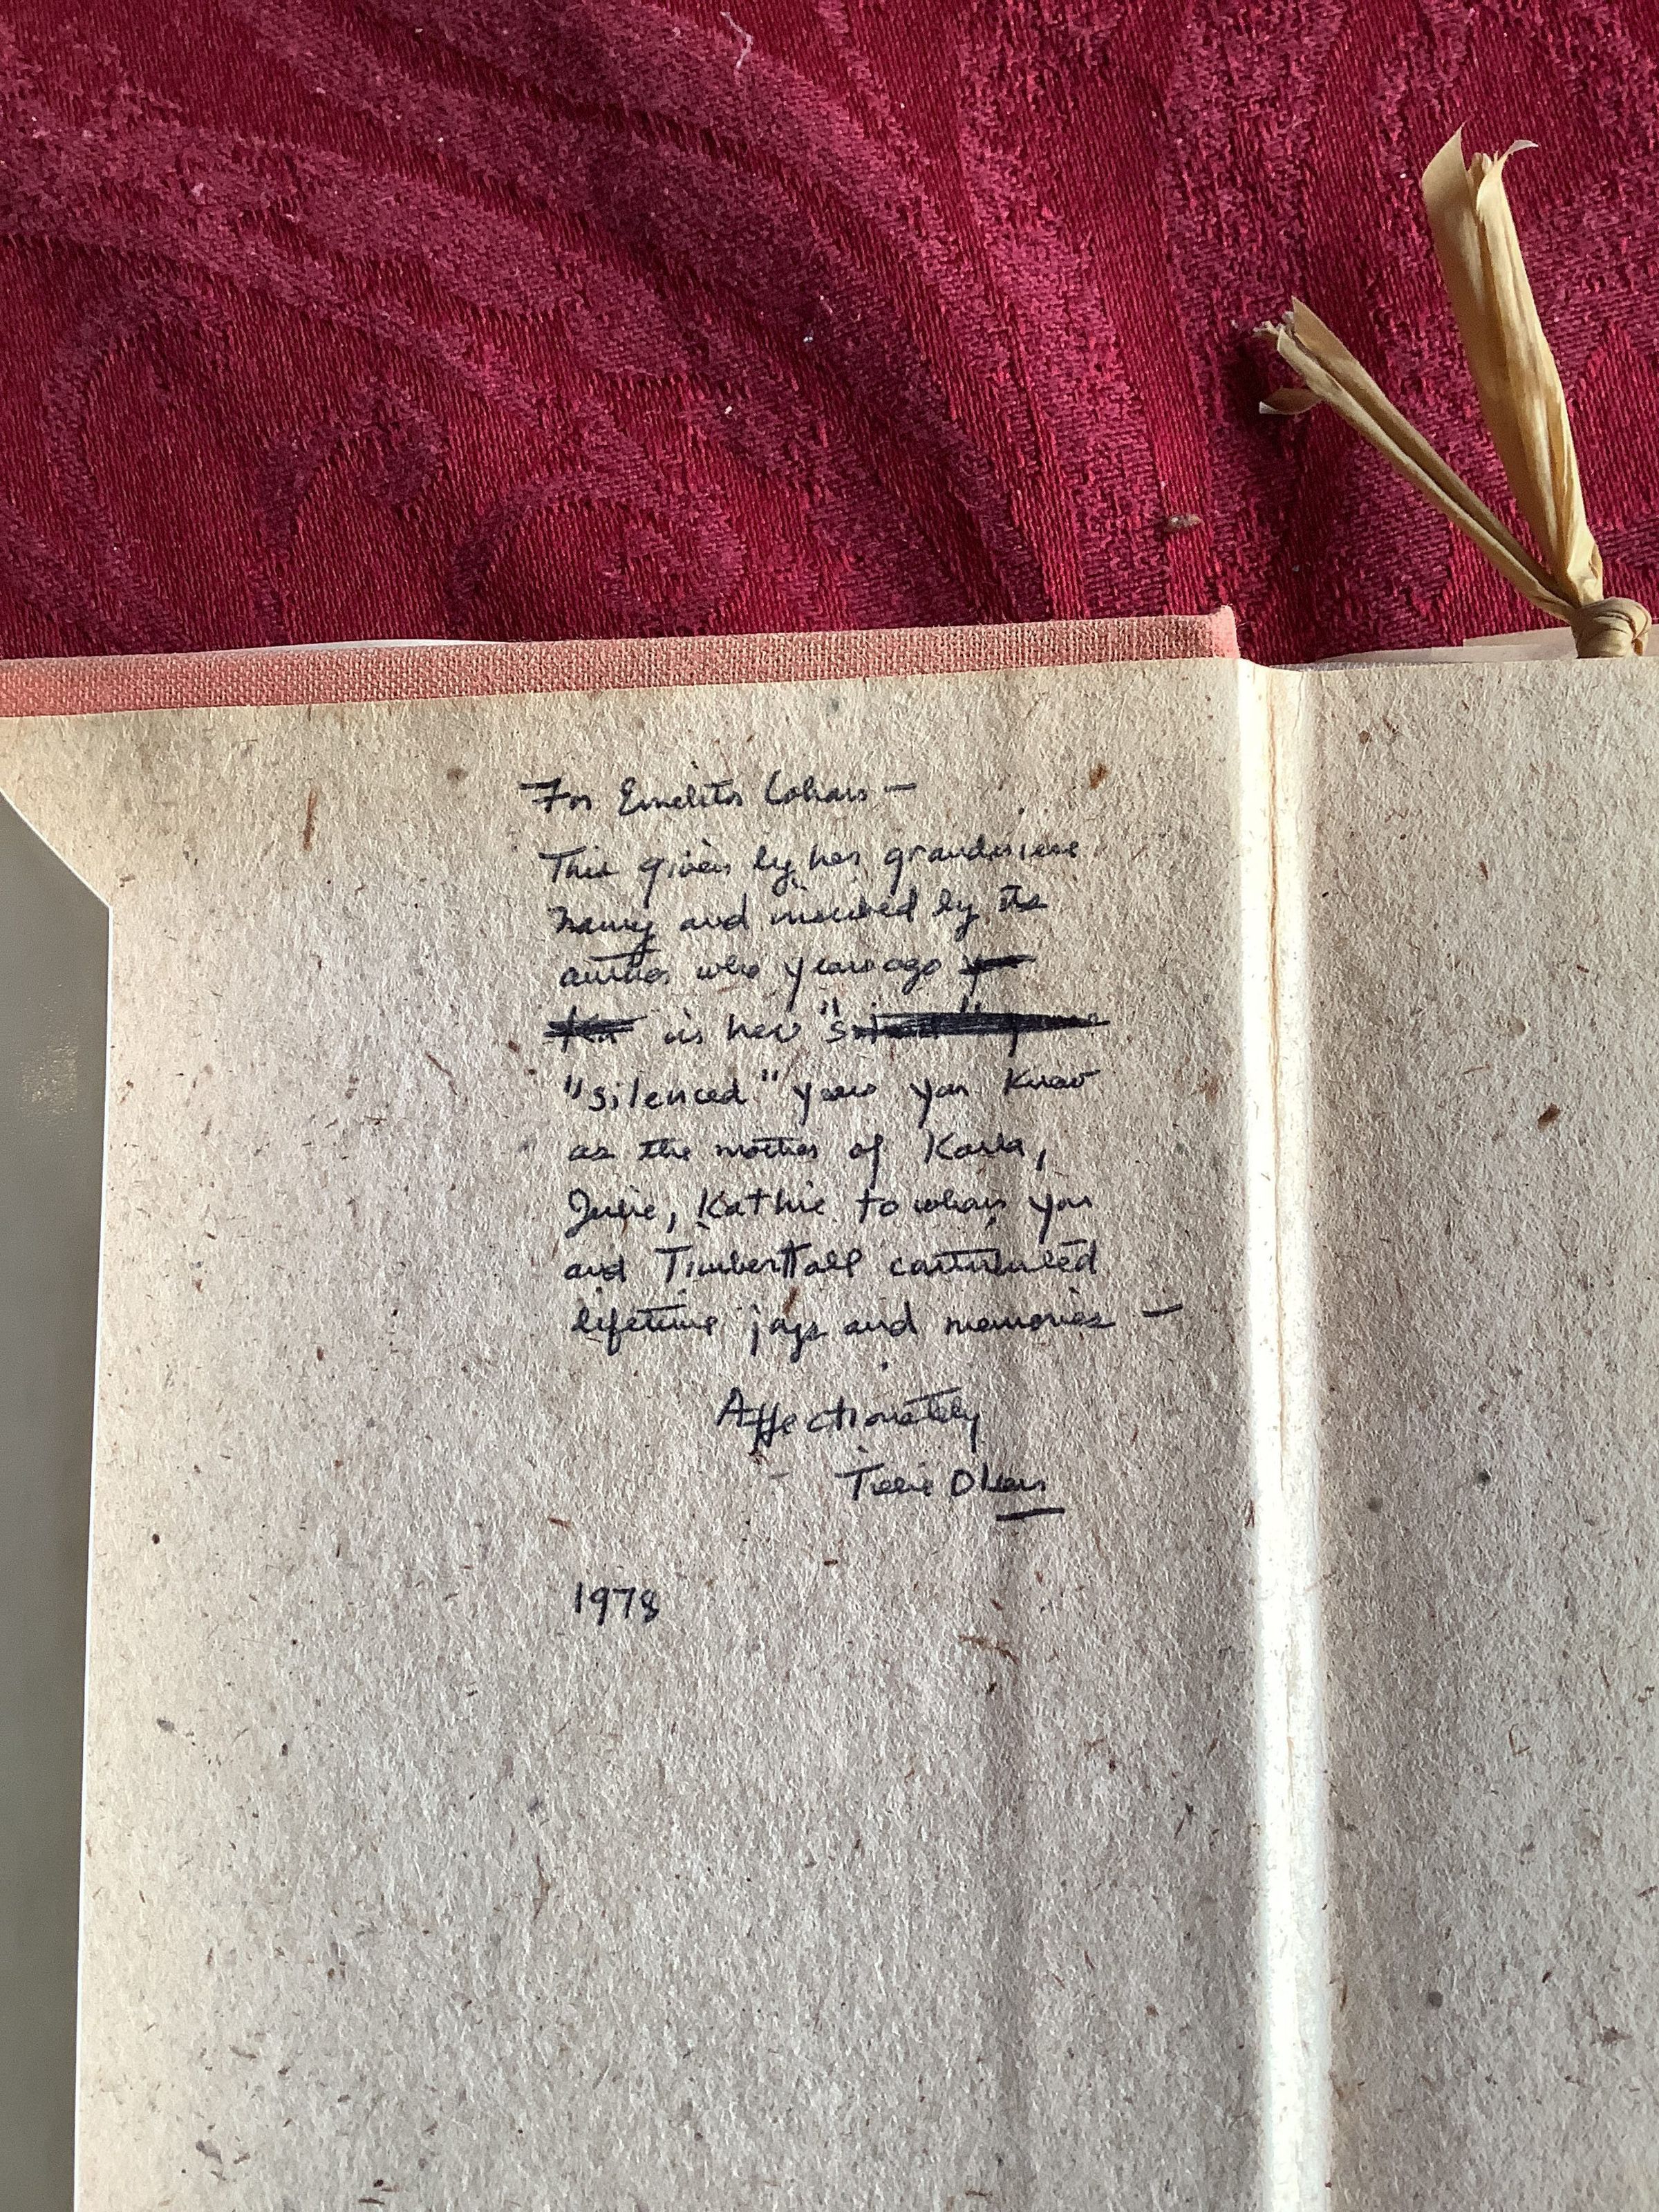 For Emelita Cohan —
This given by her grandniece
Nancy and inscribed by the
author who years ago
in her "silenced" years you knew
as the mother of Karla,
Julie, Kathie to whom you
and Timbertall contributed
lifetime joys and memories —
Affectionately
Tillie Olsen
1978